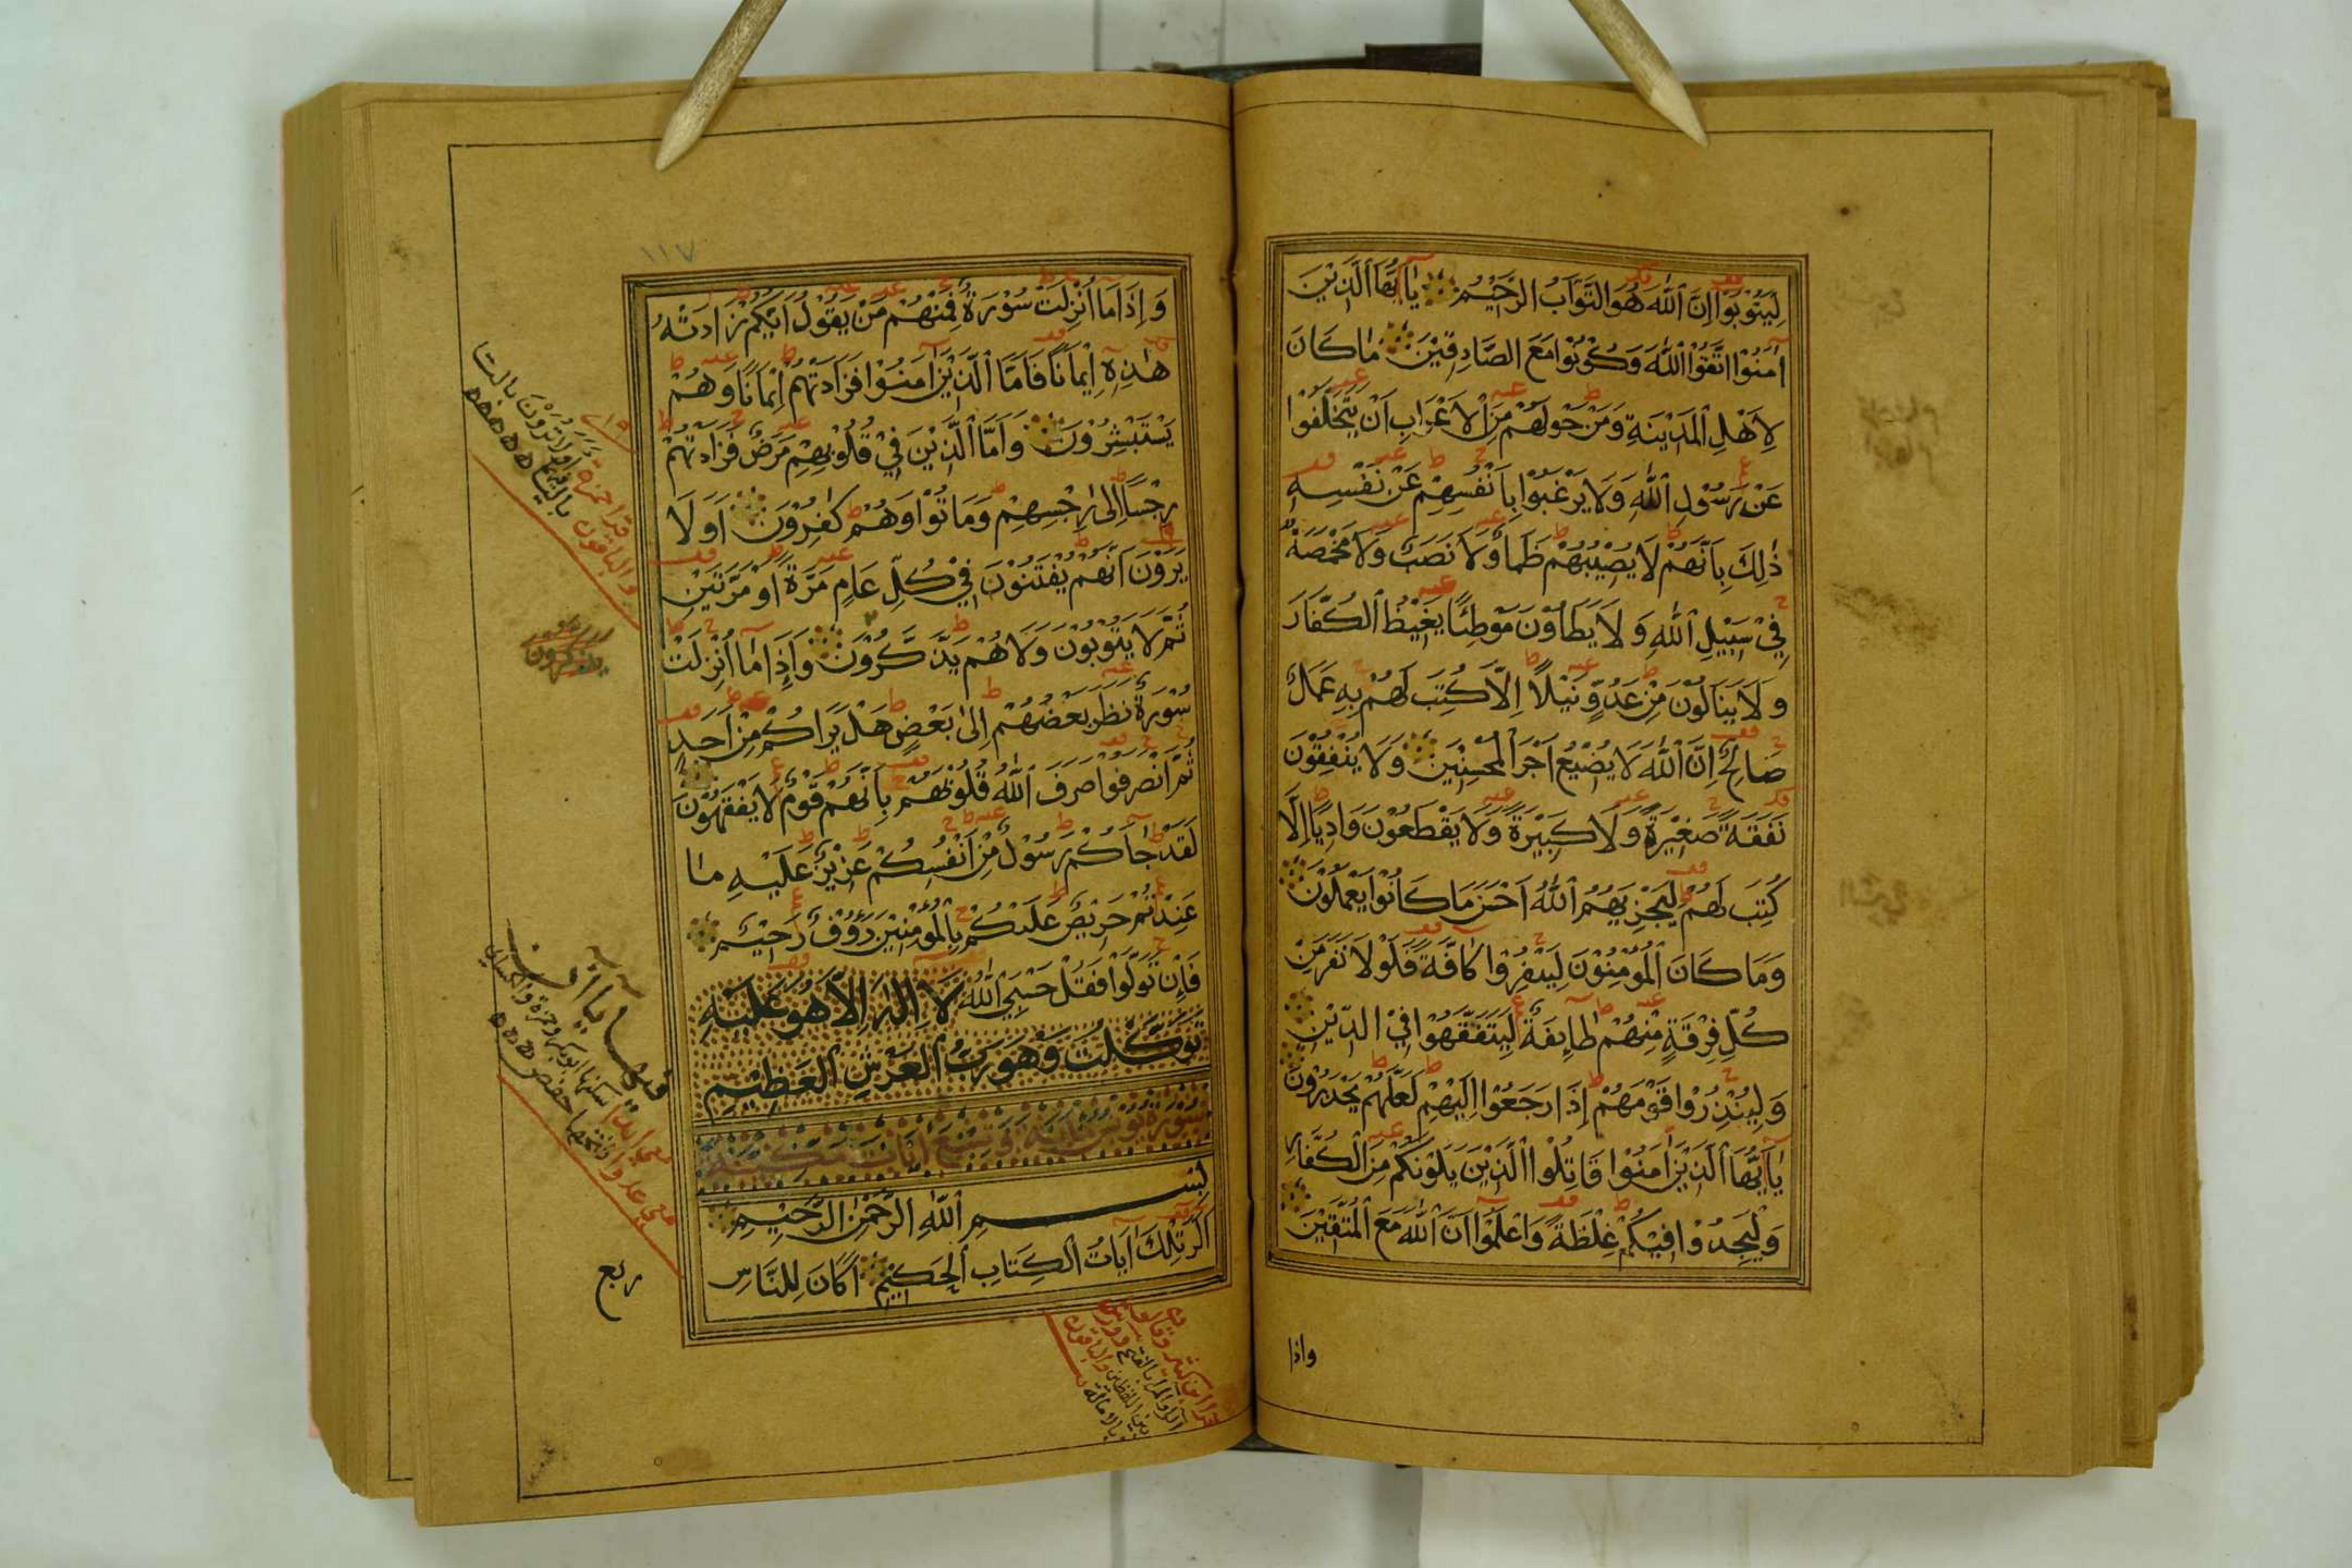 لِيَتُوْبُوْا اِنَّ اللّٰهَ هُوَ التَّوَّابُ الرَّحِيْمُ يٰا اَيُّهَا الَّذِيْنَ
اٰمَنُوْا اتَّقُوْا اللّٰهَ وَكُوْنُوْا مَعَ الصَّادِقِيْنَ مٰا كَانَ
لِاَهْلِ الْمَدِيْنَةِ وَمَنْ حَوْلَهُمْ مِنَ الْاَعْرَابِ اَنْ يَتَخَلَّفُوْا
عَنْ رَسُوْلِ اللّٰهِ وَلَا يَرْغَبُوْا بِاَنْفُسِهِمْ عَنْ نَفْسِهِ
ذٰلِكَ بِاَنَّهُمْ لَا يُصِيْبُهُمْ ظَمَأٌ وَلَا نَصَبٌ وَلَا مَخْمَصَةٌ
فِيْ سَبِيْلِ اللّٰهِ وَلَا يَطَاوُنَ مَوْطِئًا يَغِيْظُ الْكُفَّارَ
وَلَا يَنَالُوْنَ مِنْ عَدُوٍّ نَيْلًا اِلَّا كُتِبَ لَهُمْ بِهِ عَمَلٌ
صَالِحٌ اِنَّ اللّٰهَ لَا يُضِيْعُ اَجْرَ الْمُحْسِنِيْنَ وَلَا يُنْفِقُوْنَ
نَفَقَةً صَغِيْرَةً وَلَا كَبِيْرَةً وَلَا يَقْطَعُوْنَ وَادِيًا اِلَّا
كُتِبَ لَهُمْ لِيَجْزِيَهُمُ اللّٰهُ اَحْسَنَ مَا كَانُوْا يَعْمَلُوْنَ
وَمَا كَانَ الْمُؤْمِنُوْنَ لِيَنْفِرُوْا كَافَّةً فَلَوْلَا نَفَرَ مِنْ
كُلِّ فِرْقَةٍ مِنْهُمْ طَايِفَةٌ لِيَتَفَقَّهُوْا فِيْ الدِّيْنِ
وَلِيُنْذِرُوْا قَوْمَهُمْ اِذَا رَجَعُوْا اِلَيْهِمْ لَعَلَّهُمْ يَحْذَرُوْنَ
يٰا اَيُّهَا الَّذِيْنَ اٰمَنُوْا قَاتِلُوْا الَّذِيْنَ يَلُوْنَكُمْ مِنَ الْكُفَّارِ
وَلْيَجِدُوْا فِيْكُمْ غِلْظَةً وَاعْلَمُوْا اَنَّ اللّٰهَ مَعَ الْمُتَّقِيْنَ
واذا
١١٧
وَاِذَا مَا اُنْزِلَتْ سُوْرَةٌ فَمِنْهُمْ مَنْ يَقُوْلُ اَيُّكُمْ زَادَتْهُ
هٰذِهِ اِيْمَانًا فَاَمَّا الَّذِيْنَ اٰمَنُوْا فَزَادَتْهُمْ اِيْمَانًا وَهُمْ
يَسْتَبْشِرُوْنَ وَاَمَّا الَّذِيْنَ فِيْ قُلُوْبِهِمْ مَرَضٌ فَزَادَتْهُمْ
رِجْسًا اِلٰى رِجْسِهِمْ وَمَاتُوْا وَهُمْ كٰفِرُوْنَ اَوَلَا
يَرَوْنَ اَنَّهُمْ يُفْتَنُوْنَ فِيْ كُلِّ عَامٍ مَرَّةً اَوْ مَرَّتَيْنِ
ثُمَّ لَا يَتُوْبُوْنَ وَلَا هُمْ يَذَّكَّرُوْنَ وَاِذَا مٰا اُنْزِلَتْ
سُوْرَةٌ نَظَرَ بَعْضُهُمْ اِلٰى بَعْضٍ هَلْ يَرَاكُمْ مِنْ اَحَدٍ
ثُمَّ انْصَرَفُوْا صَرَفَ اللّٰهُ قُلُوْبَهُمْ بِاَنَّهُمْ قَوْمٌ لَا يَفْقَهُوْنَ
لَقَدْ جٰاَكُمْ رَسُوْلٌ مِنْ اَنْفُسِكُمْ عَزِيْزٌ عَلَيْهِ مٰا
عَنِتُّمْ حَرِيْصٌ عَلَيْكُمْ بِالْمُؤْمِنِيْنَ رَؤُوْفٌ رَحِيْمٌ
فَاِنْ تَوَلَّوْا فَقُلْ حَسْبِيَ اللّٰهُ لَا اِلٰهَ اِلَّا هُوَ عَلَيْهِ
تَوَكَّلْتُ وَهُوَ رَبُّ الْعَرْشِ الْعَظِيْمِ
سُوْرَةُ يُوْنُسَ مِائَة وَتِسْعُ اٰيَاتٍ مَكِّيَّة
بِسْمِ اللّٰهِ الرَّحْمٰنِ الرَّحِيْمِ
الٓرٰ تِلْكَ اٰيَاتُ الْكِتَابِ الْحَكِيْمِ اَكَانَ لِلنَّاسِ
قرا حمزة اولا ترون بالتا
والباقون بالياء
معى عدوا
ربع